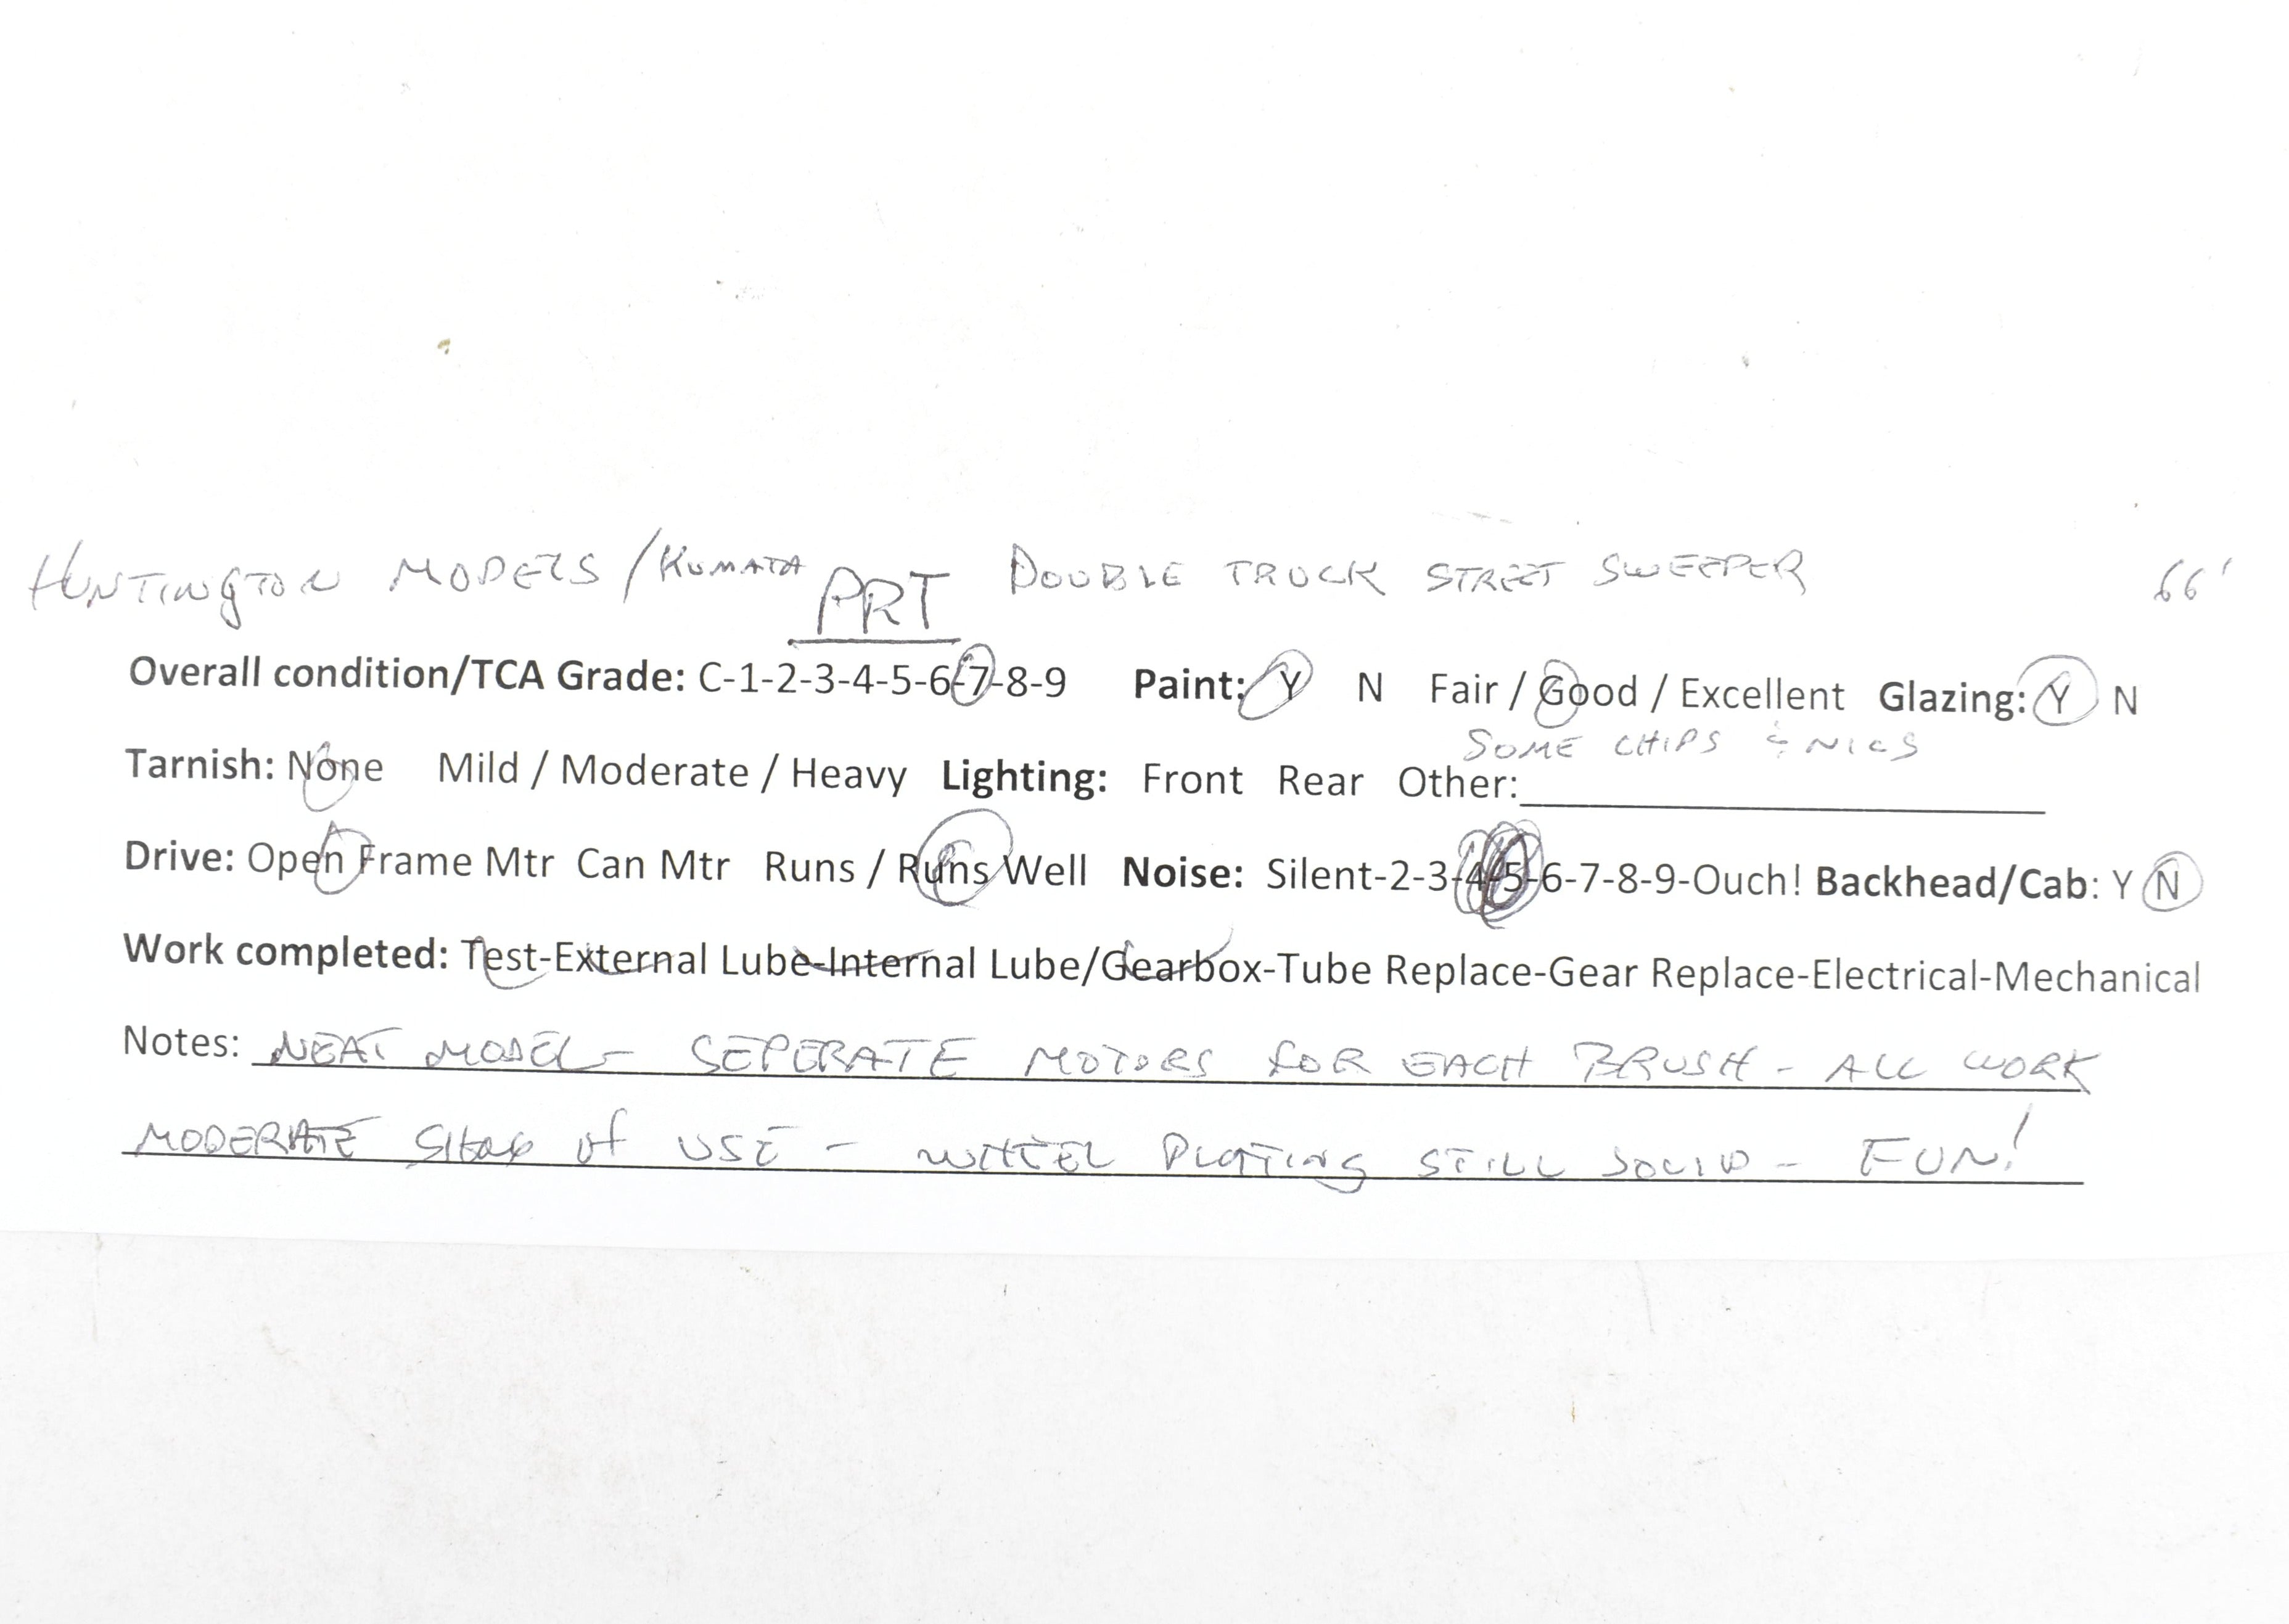 HUNTINGTON MODELS / KUMATA PRT DOUBLE TRUCK STREET SWEEPER 66'
Overall condition/TCA Grade: C-1-2-3-4-5-6-7-8-9 Paint: Y N Fair / Good / Excellent Glazing: Y N
SOME CHIPS & NICS
Tarnish: None Mild / Moderate / Heavy Lighting: Front Rear Other:
Drive: Open Frame Mtr Can Mtr Runs / Runs Well Noise: Silent-2-3-4-5-6-7-8-9-Ouch! Backhead/Cab: Y N
Work completed: Test-External Lube-Internal Lube/Gearbox-Tube Replace-Gear Replace-Electrical-Mechanical
Notes: NEAT MODEL - SEPERATE MOTORS FOR EACH BRUSH - ALL WORK
MODERATE SIGNS of USE - WHEEL PLATING STILL SOLID - FUN!